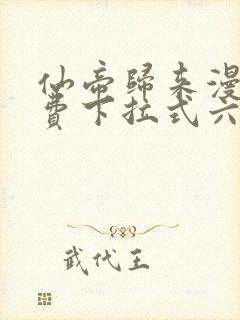 仙帝歸来漫
費下拉式六
武代王